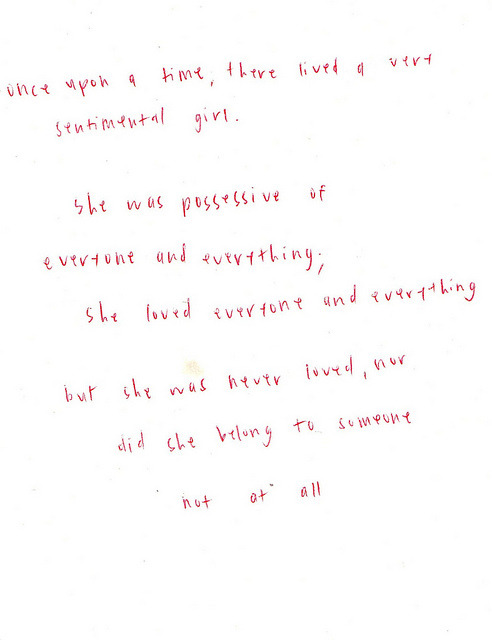 once upon a time, there lived a very
sentimental girl.
she was possessive of
everyone and everything;
she loved everyone and everything
but she was never loved, nor
did she belong to someone
not at all